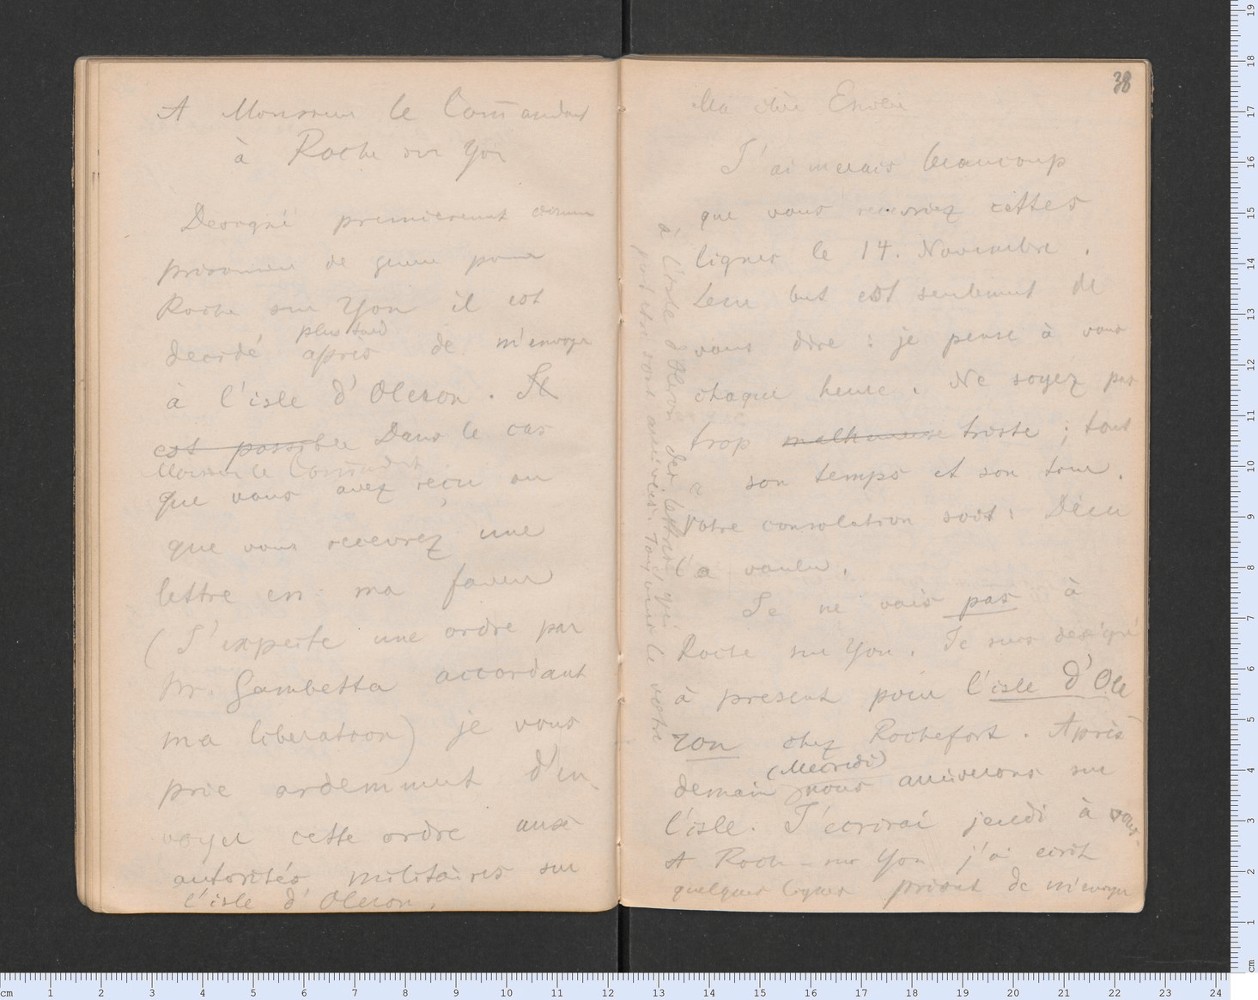 A Monsieur le Com̄andant
à Roche sur Yon
Desogné premierement comme
prisonnier de guerre pour
Roche sur Yon il est
plus tard
decidé après de m'envoyer
à l'isle d'Oleron. Il
est possible Dans le cas
Monsieur le Commandant
que vous avez reçu ou
que vous recevrez une
lettre en ma faveur
(J'experte une ordre par
Mr. Gambetta accordant
ma liberatioon) je vous
prie ardemment d'en
voyer cette ordre aux
autorités militaires sur
l'isle d'Oleron.
38
Ma chère
J'aimerais beaucoup
que vous receuriez cettes
lignes le 14. Novembre.
Leur but est seulement de
vous dire : je pense à vous
chaque heure. Ne soyez pas
trop malheureuse triste ; tout
a son temps et son tour.
Votre consolation soit: Dieu
l'a voulu.
Je ne vais pas à
Roche sur Yon. Je suis designé
à present pour l'isle d'Ole
ron chez Rochefort. Après
(Mecredi)
demain nous arriverons sur
l'isle. J'ecrirai jeudi à vous.
A Roch-sur Yon j'ai ecrit
quelques lignes priant de m'envoyer
à l'isle d'Oleron des lettres qui
peut être sont arrivées. Tout le votre